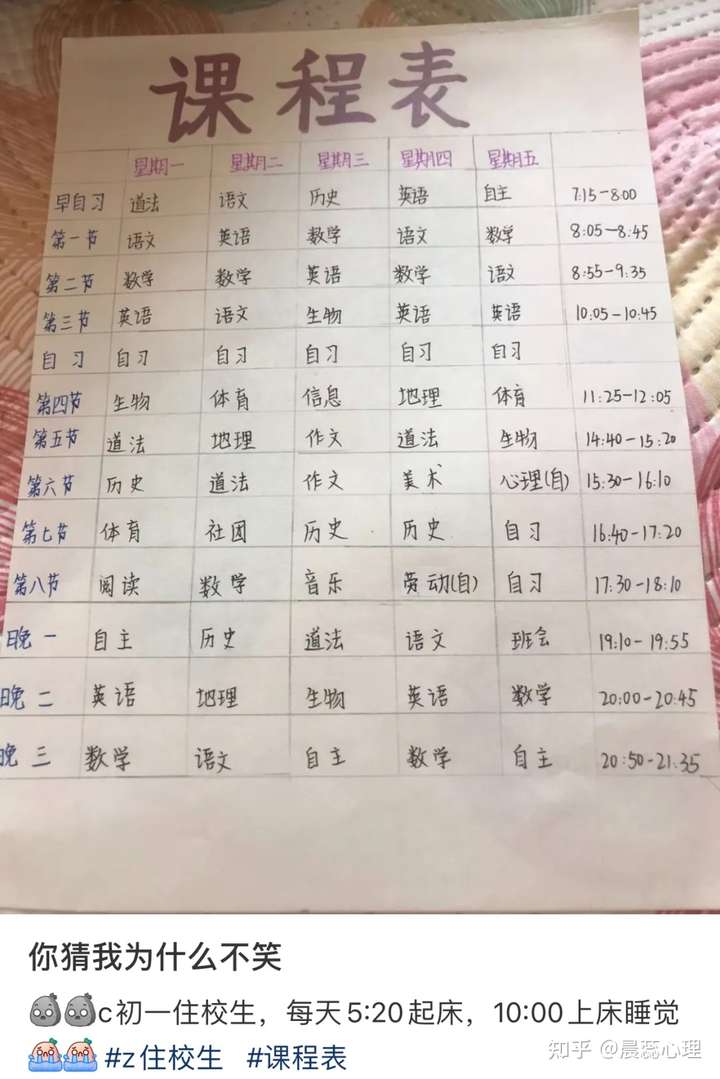 课程表
星期一 星期二 星期三 星期四 星期五
早自习 道法 语文 历史 英语 自主 7:15-8:00
第一节 语文 英语 数学 语文 数学 8:05-8:45
第二节 数学 数学 英语 数学 语文 8:55-9:35
第三节 英语 语文 生物 英语 英语 10:05-10:45
自习 自习 自习 自习 自习 自习
第四节 生物 体育 信息 地理 体育 11:25-12:05
第五节 道法 地理 作文 道法 生物 14:40-15:20
第六节 历史 道法 作文 美术 心理(自) 15:30-16:10
第七节 体育 社团 历史 历史 自习 16:40-17:20
第八节 阅读 数学 音乐 劳动(自) 自习 17:30-18:10
晚一 自主 历史 道法 语文 班会 19:10-19:55
晚二 英语 地理 生物 英语 数学 20:00-20:45
晚三 数学 语文 自主 数学 自主 20:50-21:35
你猜我为什么不笑
c初一住校生，每天5:20起床，10:00上床睡觉
#z住校生 #课程表
知乎 @晨蕊心理